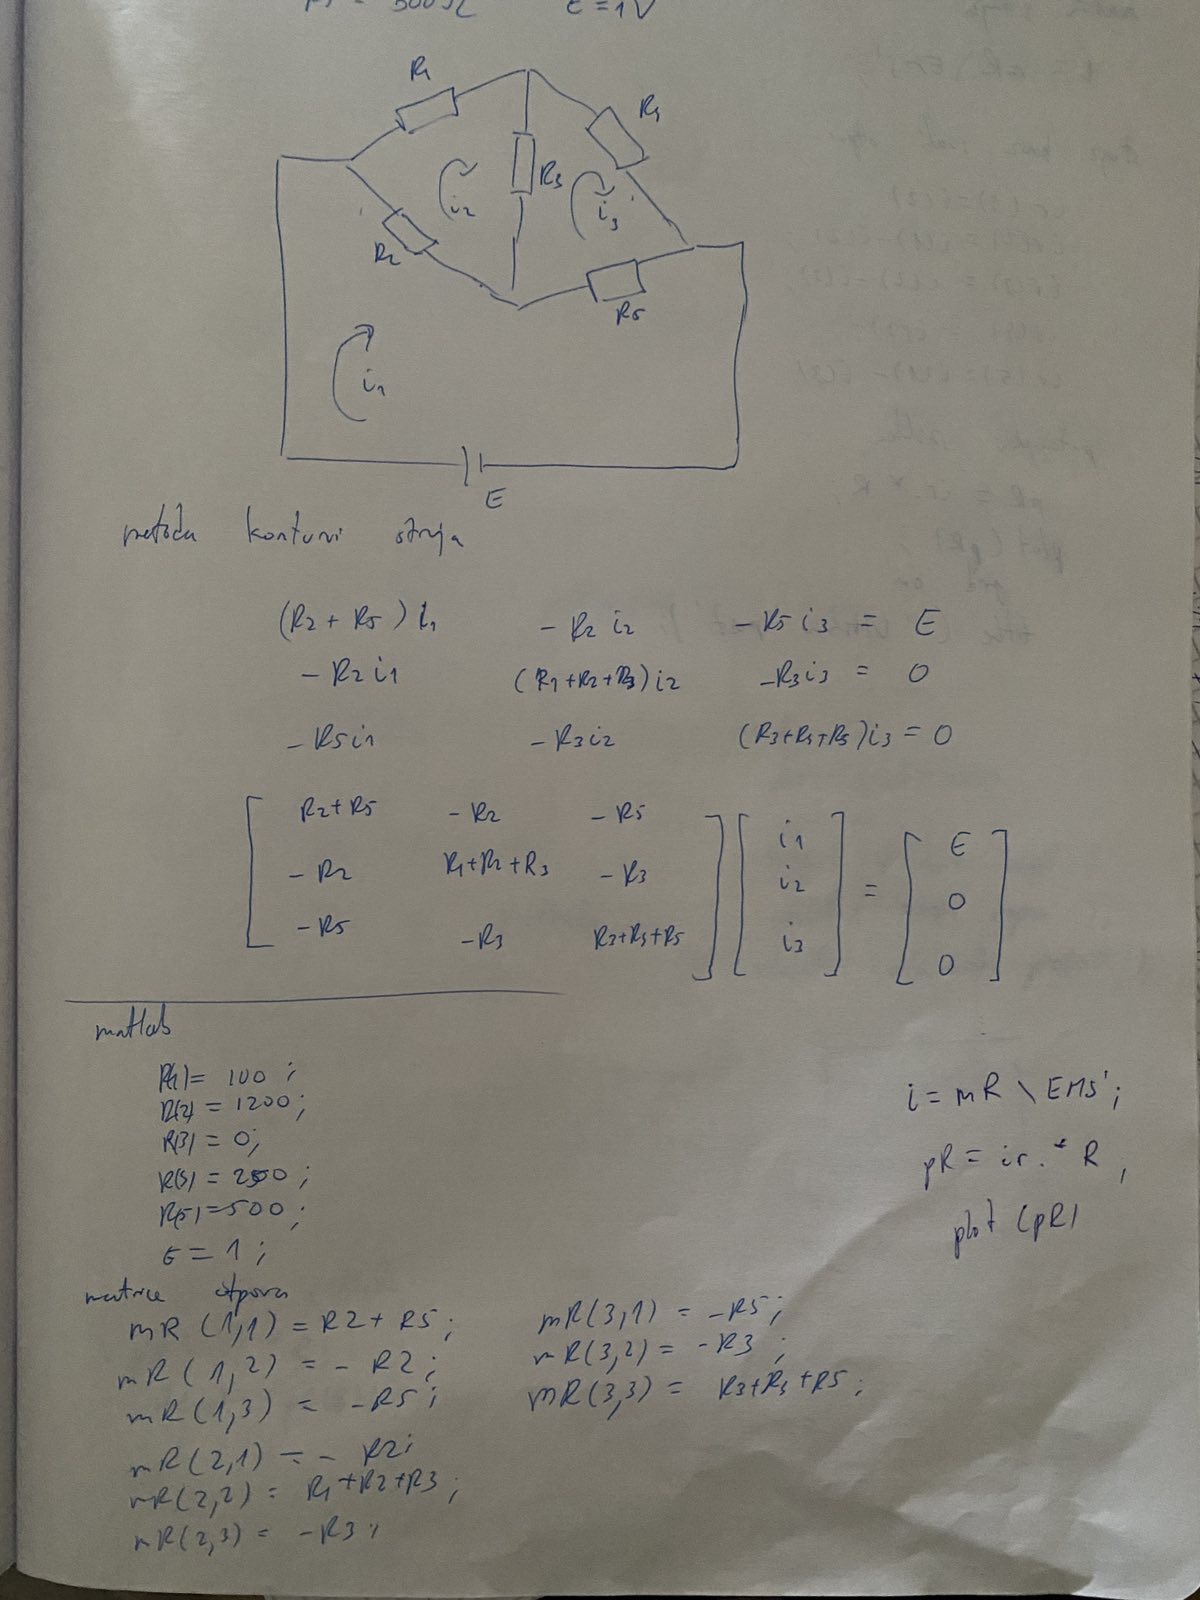 = 500Ω E = 1V
R1
R4
R3
i2
i3
R2
R5
i1
E
metoda konturni struja
(R2 + R5) i1 - R2 i2 - R5 i3 = E
- R2 i1 (R1 + R2 + R3) i2 - R3 i3 = 0
- R5 i1 - R3 i2 (R3 + R4 + R5) i3 = 0
R2 + R5 - R2 - R5 i1 E
- R2 R1 + R2 + R3 - R3 i2 = 0
- R5 - R3 R3 + R4 + R5 i3 0
matlab
R(1) = 100 ;
R(2) = 1200 ;
R(3) = 0 ;
R(4) = 250 ;
R(5) = 500 ;
E = 1 ;
i = mR \ EMS' ;
pR = ir .* R ,
plot (pR)
matrice otpora
mR (1,1) = R2 + R5 ;
mR (1,2) = - R2 ;
mR (1,3) = - R5 ;
mR (2,1) = - R2 ;
mR (2,2) = R1 + R2 + R3 ;
mR (2,3) = - R3 ;
mR (3,1) = - R5 ;
mR (3,2) = - R3 ;
mR (3,3) = R3 + R4 + R5 ;